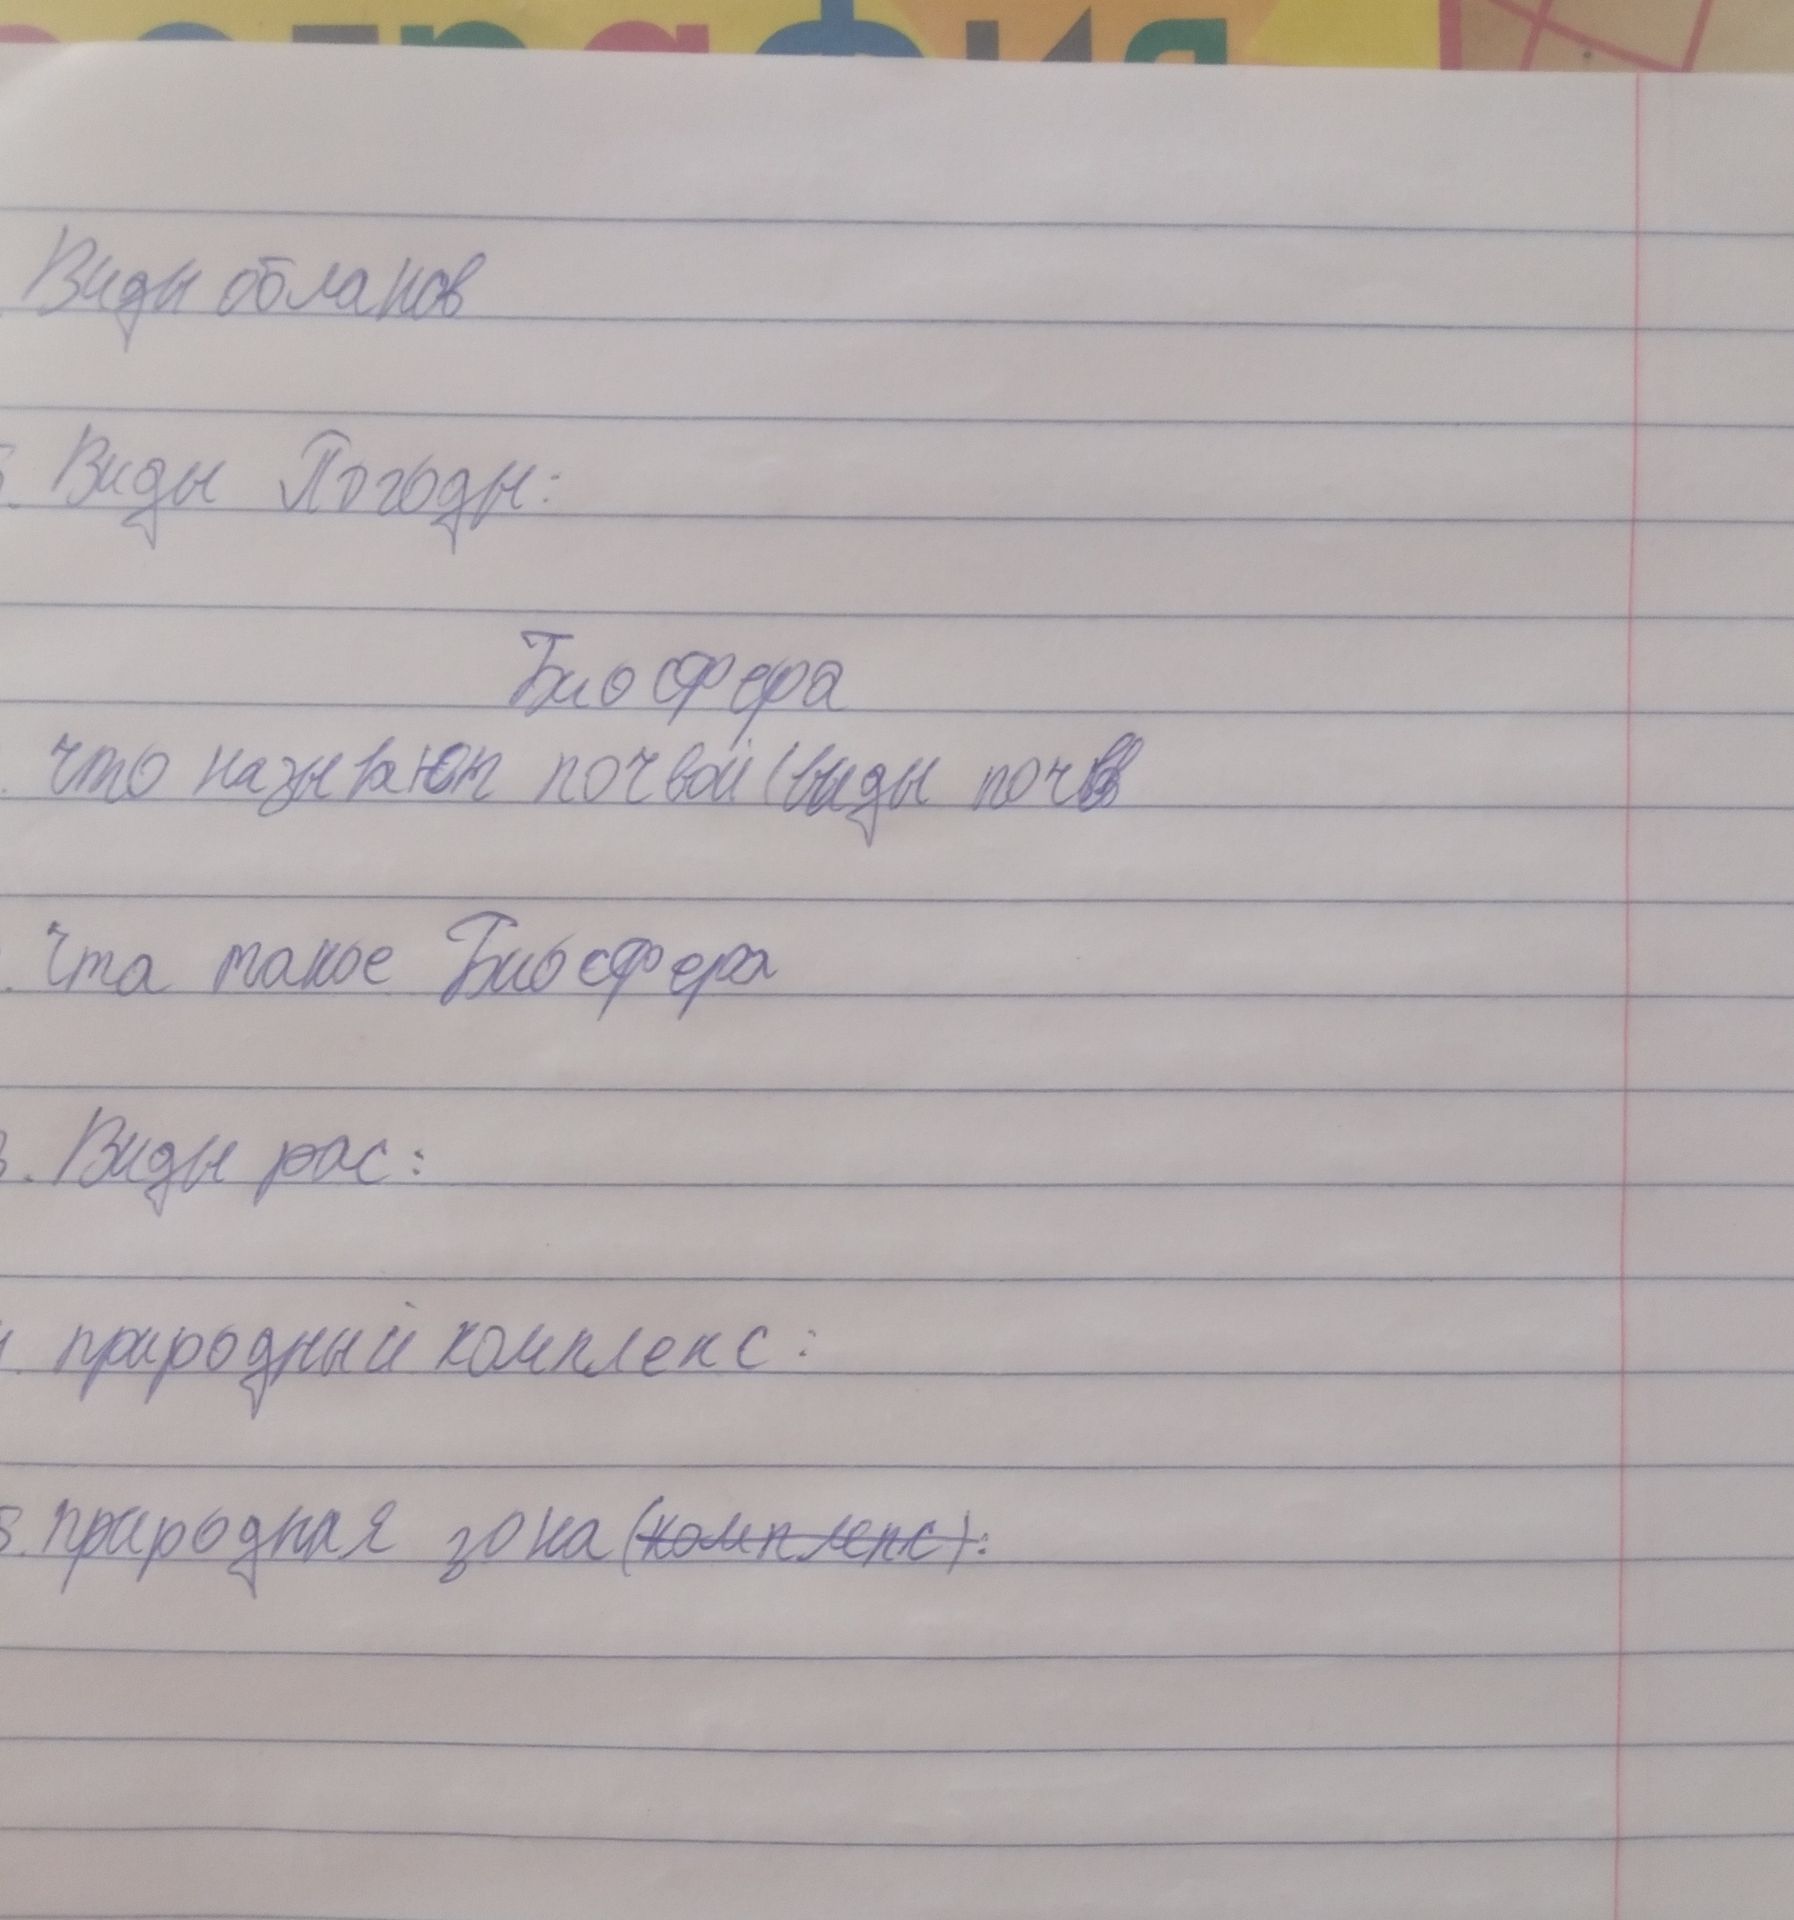 география
Виды облаков
5. Виды Погоды:
Биосфера
что называют почвой (виды почв
Что такое Биосфера
3. Виды рас:
4. природный комплекс:
5. природная зона (комплекс):